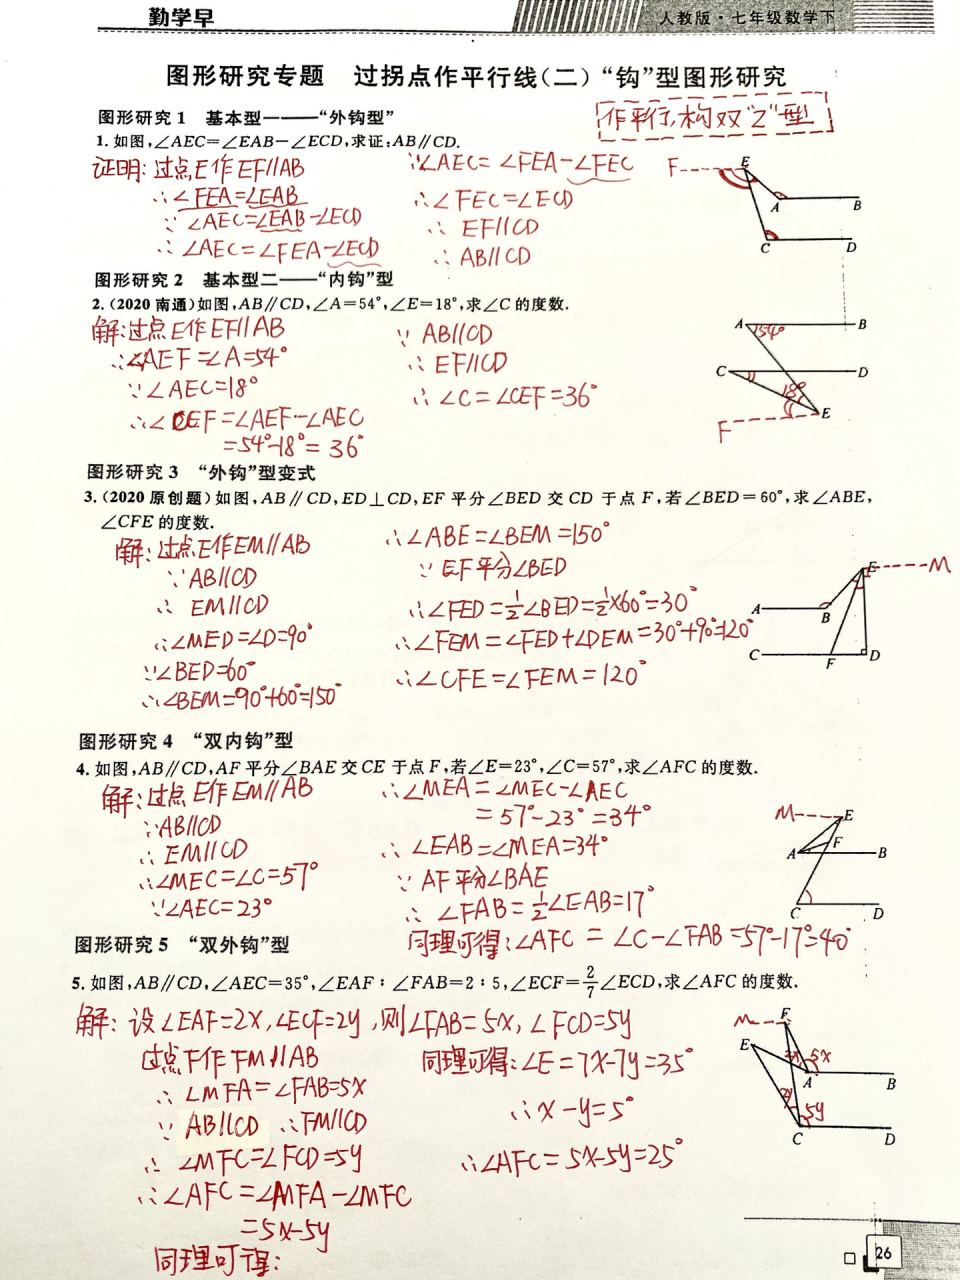 勤学早
人教版·七年级数学下
图形研究专题 过拐点作平行线(二)“钩”型图形研究
图形研究1 基本型一——“外钩型”
作平行,构双“Z”型
1. 如图,∠AEC=∠EAB-∠ECD,求证:AB∥CD.
证明:过点E作EF∥AB
∴∠FEA=∠EAB
∵∠AEC=∠EAB-∠ECD
∴∠AEC=∠FEA-∠ECD
∵∠AEC=∠FEA-∠FEC
∴∠FEC=∠ECD
∴EF∥CD
∴AB∥CD
F E A B C D
图形研究2 基本型二——“内钩”型
2. (2020 南通)如图,AB∥CD,∠A=54°,∠E=18°,求∠C的度数.
解:过点E作EF∥AB
∴∠AEF=∠A=54°
∵∠AEC=18°
∴∠CEF=∠AEF-∠AEC
=54°-18°=36°
∵AB∥CD
∴EF∥CD
∴∠C=∠CEF=36°
A 54° B
C D
18° E
F
图形研究3 “外钩”型变式
3. (2020 原创题)如图,AB∥CD,ED⊥CD,EF 平分∠BED 交 CD 于点 F,若∠BED=60°,求∠ABE,
∠CFE的度数.
解:过点E作EM∥AB
∵AB∥CD
∴EM∥CD
∴∠MED=∠D=90°
∵∠BED=60°
∴∠BEM=90°+60°=150°
∴∠ABE=∠BEM=150°
∵EF平分∠BED
∴∠FED=1/2∠BED=1/2×60°=30°
∴∠FEM=∠FED+∠DEM=30°+90°=120°
∴∠CFE=∠FEM=120°
E M
A B
C F D
图形研究4 “双内钩”型
4. 如图,AB∥CD,AF平分∠BAE交CE于点F,若∠E=23°,∠C=57°,求∠AFC的度数.
解:过点E作EM∥AB
∵AB∥CD
∴EM∥CD
∴∠MEC=∠C=57°
∵∠AEC=23°
∴∠MEA=∠MEC-∠AEC
=57°-23°=34°
∴∠EAB=∠MEA=34°
∵AF平分∠BAE
∴∠FAB=1/2∠EAB=17°
同理可得:∠AFC=∠C-∠FAB=57°-17°=40°
M E
F
A B
C D
图形研究5 “双外钩”型
5. 如图,AB∥CD,∠AEC=35°,∠EAF:∠FAB=2:5,∠ECF=2/7∠ECD,求∠AFC的度数.
解:设∠EAF=2x,∠ECF=2y,则∠FAB=5x,∠FCD=5y
过点F作FM∥AB
∴∠MFA=∠FAB=5x
∵AB∥CD ∴FM∥CD
∴∠MFC=∠FCD=5y
∴∠AFC=∠MFA-∠MFC
=5x-5y
同理可得:
同理可得:∠E=7x-7y=35°
∴x-y=5°
∴∠AFC=5x-5y=25°
M F
E 2x 5x
A B
2y 5y
C D
26